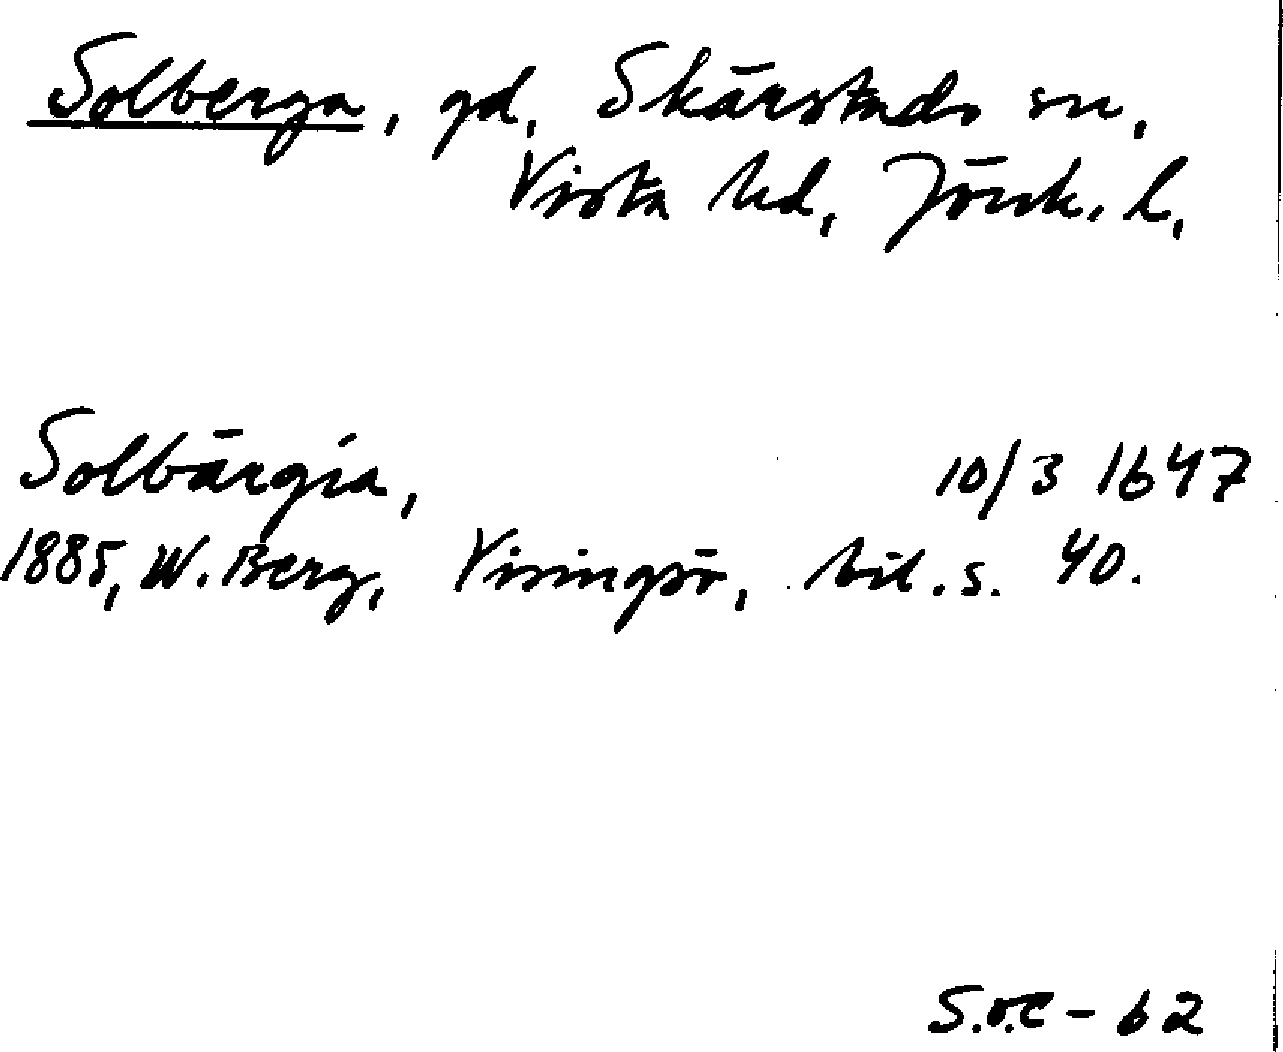 Solberga, gd, Skärstads sn,
Vista hd, Jönk. l,
Solbärgia, 10/3 1647
1885, W. Berg, Visingsö, bil. s. 40.
S.o.C - 62